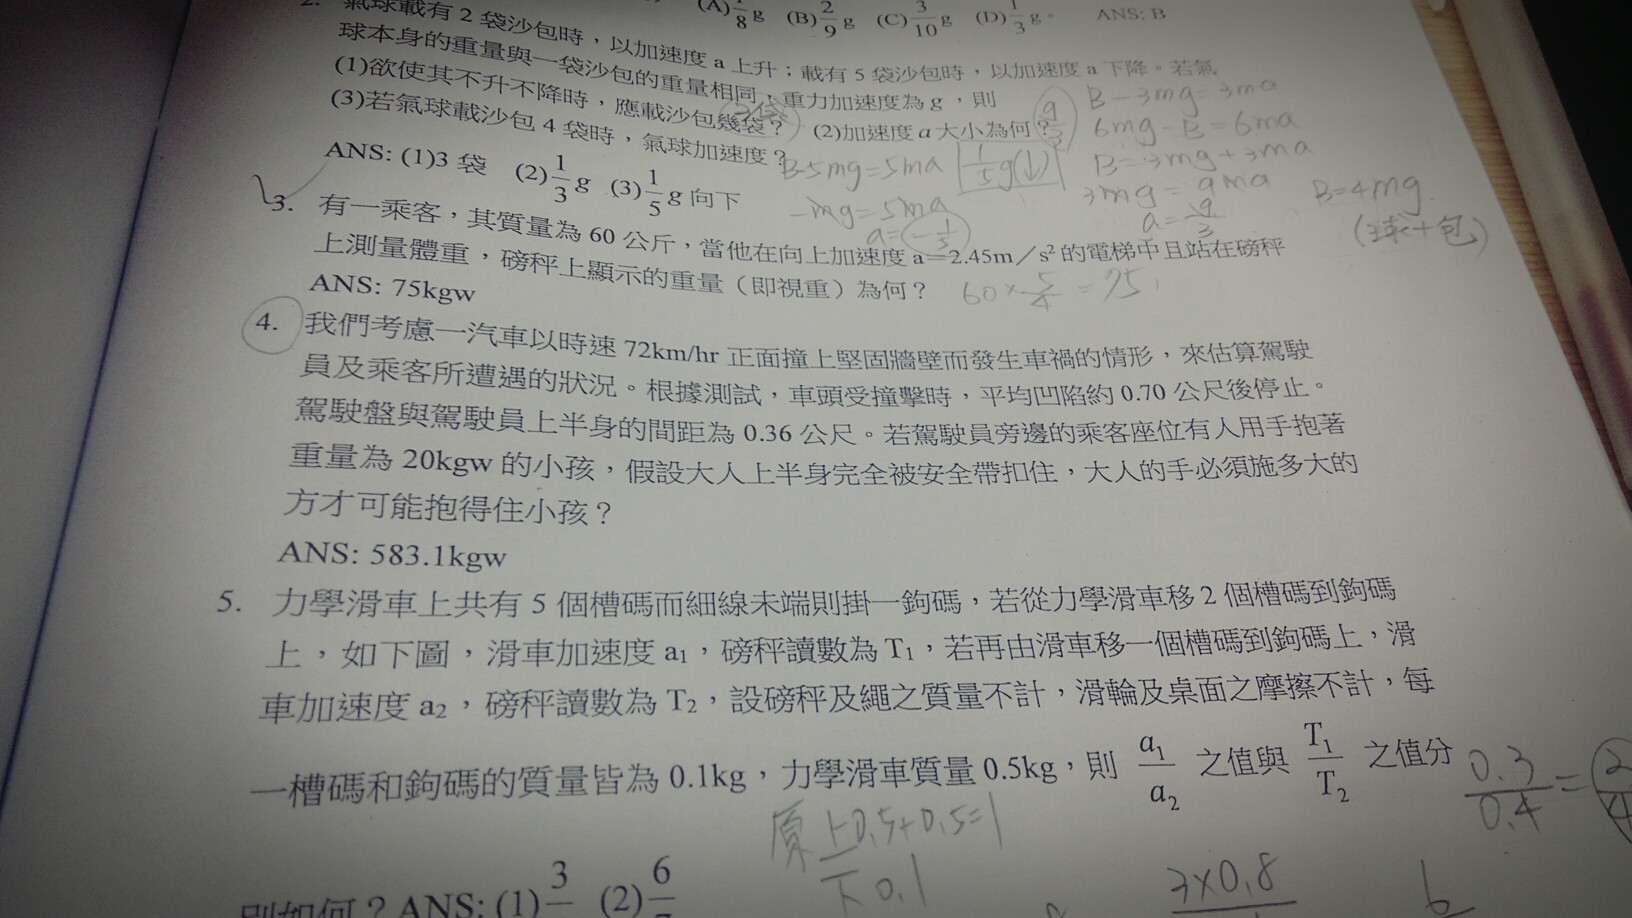 (A) 1/8 g (B) 2/9 g (C) 3/10 g (D) 1/3 g。 ANS: B
2. 氣球載有 2 袋沙包時，以加速度 a 上升；載有 5 袋沙包時，以加速度 a 下降。若氣
球本身的重量與一袋沙包的重量相同，重力加速度為 g ，則
(1)欲使其不升不降時，應載沙包幾袋？ (2)加速度 a 大小為何？
(3)若氣球載沙包 4 袋時，氣球加速度？
ANS: (1)3 袋 (2) 1/3 g (3) 1/5 g 向下
3袋
g/3
B-3mg=3ma
6mg-B=6ma
B=3mg+3ma
3mg=9ma
a=g/3
B=4mg
(球+包)
B-5mg=5ma
1/5 g(↓)
-mg=5ma
a=-1/5
3. 有一乘客，其質量為 60 公斤，當他在向上加速度 a＝2.45m／s² 的電梯中且站在磅秤
上測量體重，磅秤上顯示的重量（即視重）為何？
60×5/4=75
ANS: 75kgw
4. 我們考慮一汽車以時速 72km/hr 正面撞上堅固牆壁而發生車禍的情形，來估算駕駛
員及乘客所遭遇的狀況。根據測試，車頭受撞擊時，平均凹陷約 0.70 公尺後停止。
駕駛盤與駕駛員上半身的間距為 0.36 公尺。若駕駛員旁邊的乘客座位有人用手抱著
重量為 20kgw 的小孩，假設大人上半身完全被安全帶扣住，大人的手必須施多大的
方才可能抱得住小孩？
ANS: 583.1kgw
5. 力學滑車上共有 5 個槽碼而細線末端則掛一鉤碼，若從力學滑車移 2 個槽碼到鉤碼
上，如下圖，滑車加速度 a₁，磅秤讀數為 T₁，若再由滑車移一個槽碼到鉤碼上，滑
車加速度 a₂，磅秤讀數為 T₂，設磅秤及繩之質量不計，滑輪及桌面之摩擦不計，每
一槽碼和鉤碼的質量皆為 0.1kg，力學滑車質量 0.5kg，則 a₁/a₂ 之值與 T₁/T₂ 之值分
0.3/0.4=
原 上0.5+0.5=1
下0.1
3×0.8
6
別如何？ANS: (1) 3/ (2) 6/7